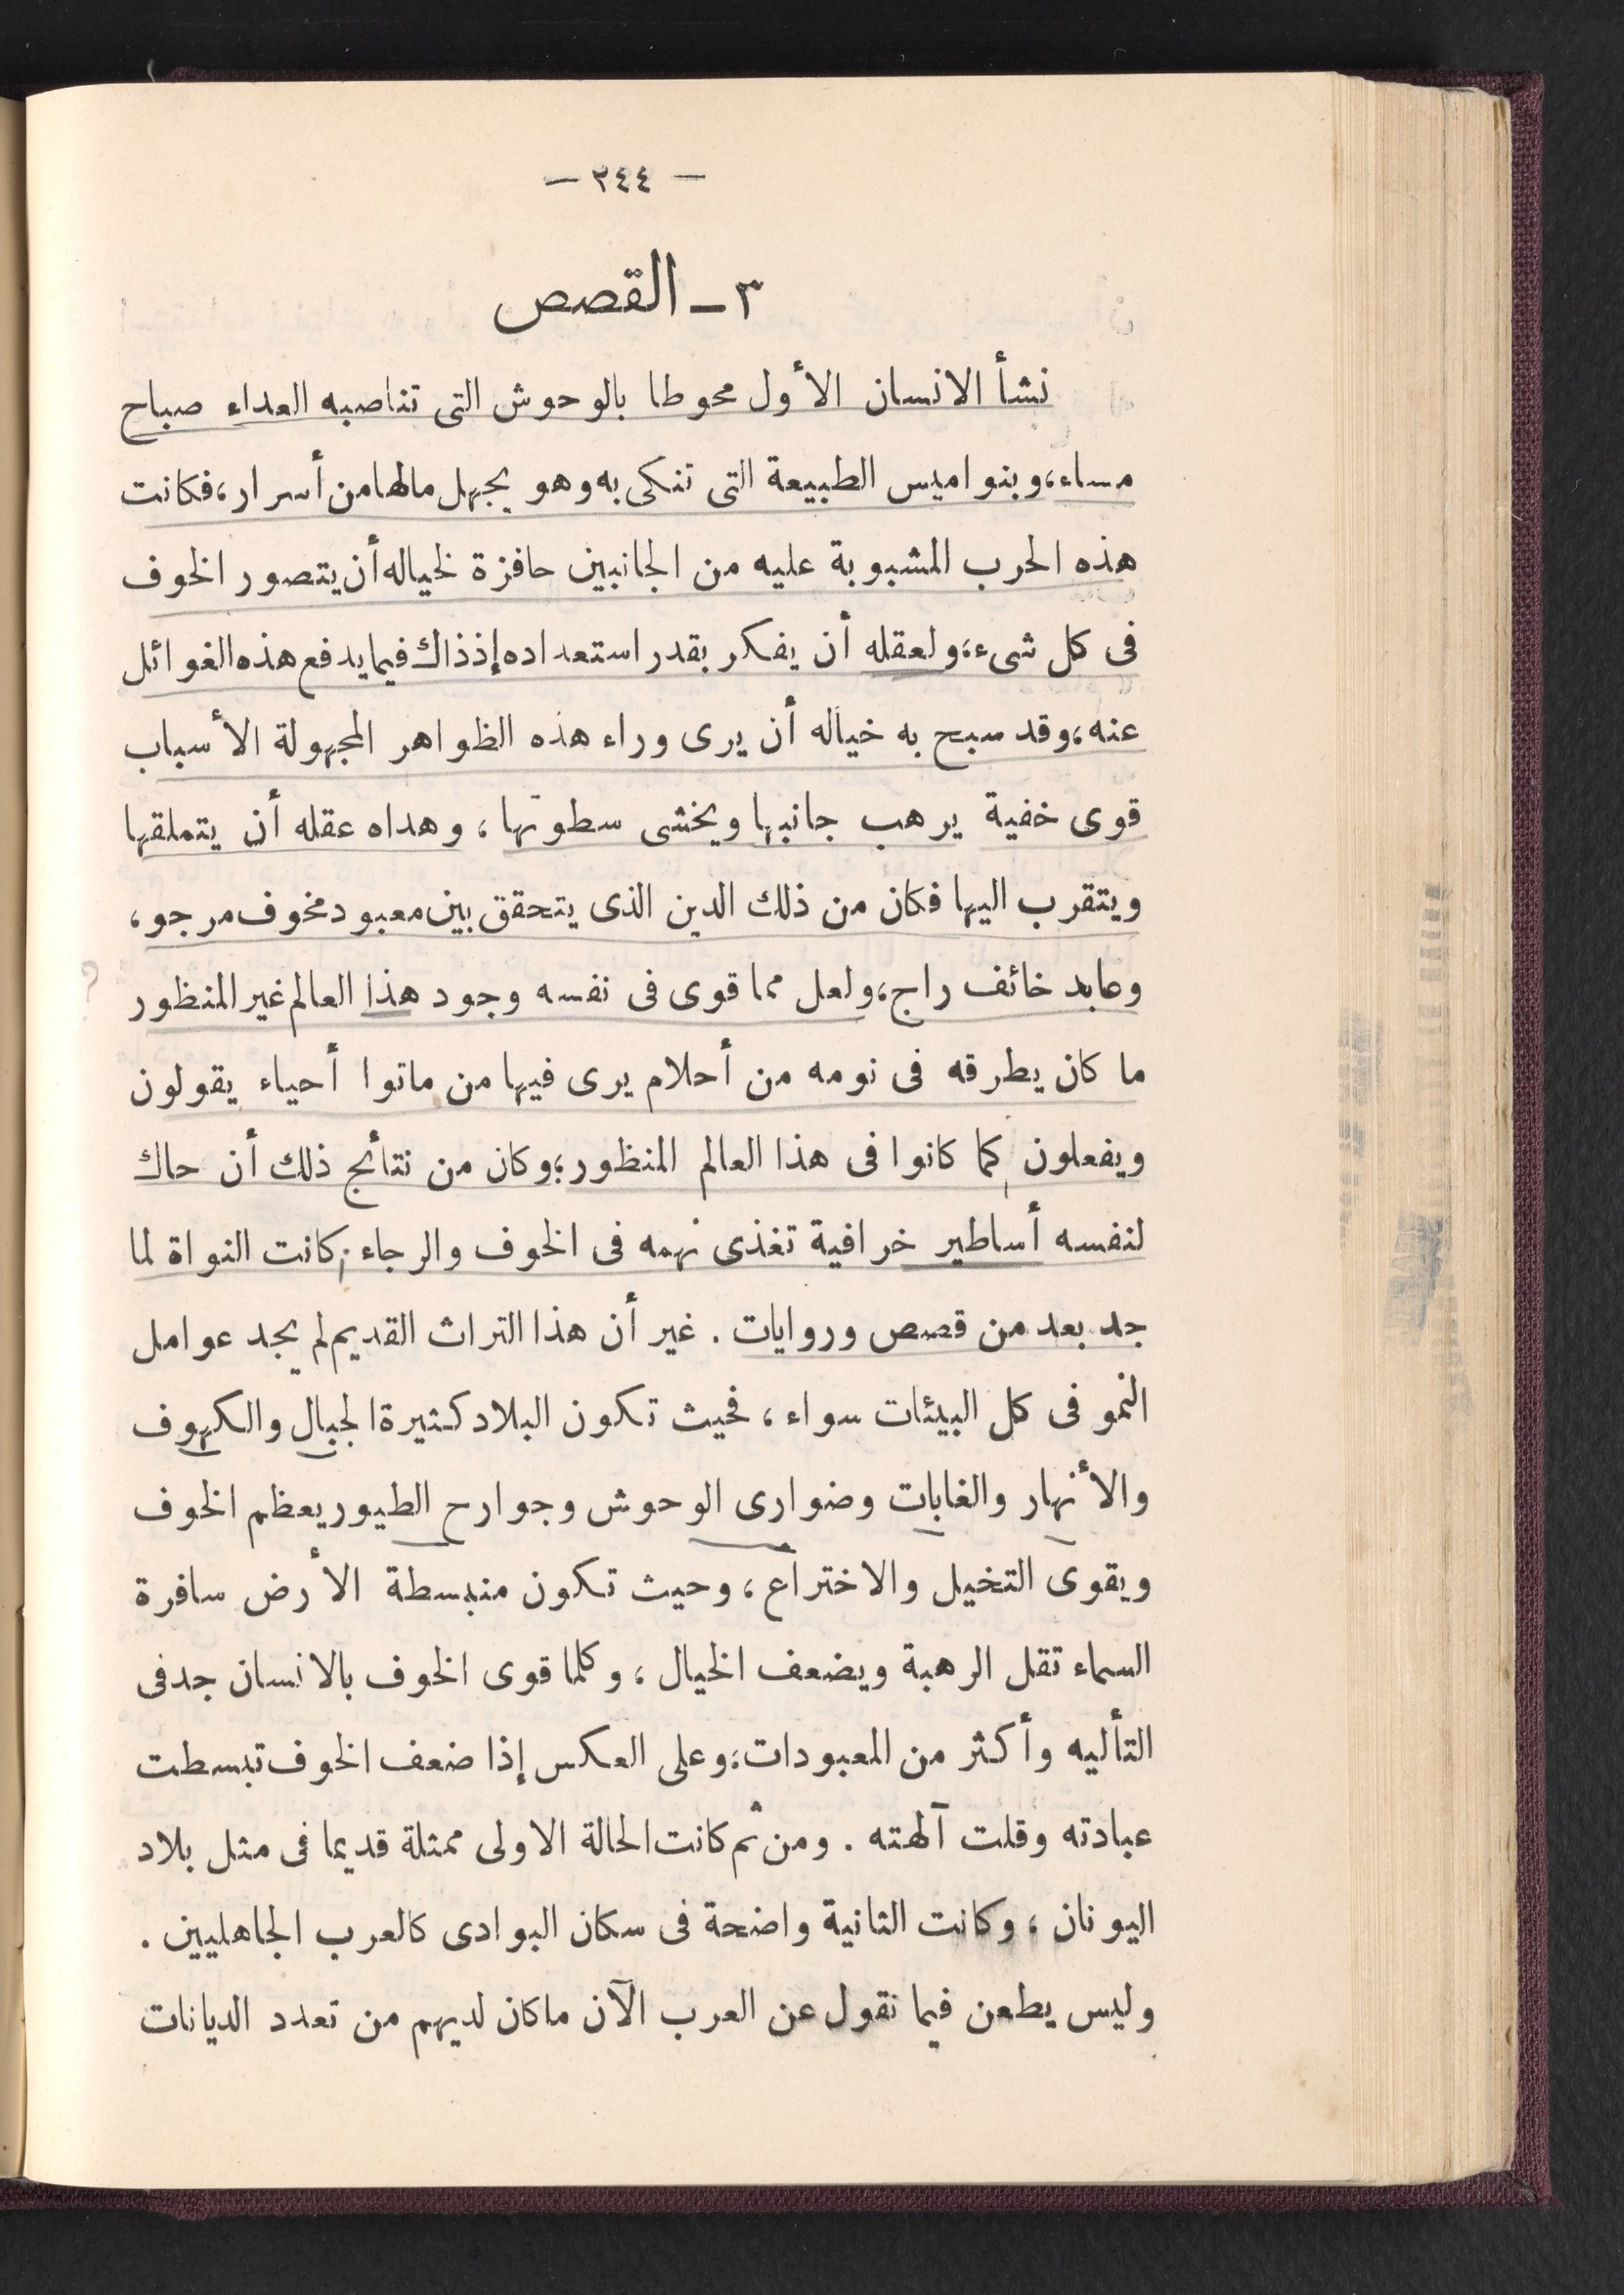 — ٢٤٤ —
٣ – القصص
نشأ الانسان الأول محوطا بالوحوش التى تناصبه العداء صباح
مساء، وبنواميس الطبيعة التى تنكى به وهو يجهل مالها من أسرار، فكانت
هذه الحرب المشبوبة عليه من الجانبين حافزة لخياله أن يتصور الخوف
فى كل شىء، ولعقله أن يفكر بقدر استعداده إذ ذاك فيما يدفع هذه الغوائل
عنه، وقد سبح به خياله أن يرى وراء هذه الظواهر المجهولة الأسباب
قوى خفية يرهب جانبها ويخشى سطوتها، وهداه عقله أن يتملقها
ويتقرب اليها فكان من ذلك الدين الذى يتحقق بين معبود مخوف مرجو،
وعابد خائف راج، ولعل مما قوى فى نفسه وجود هذا العالم غير المنظور
ما كان يطرقه فى نومه من أحلام يرى فيها من ماتوا أحياء يقولون
ويفعلون كما كانوا فى هذا العالم المنظور؛ وكان من نتائج ذلك أن حاك
لنفسه أساطير خرافية تغذى نهمه فى الخوف والرجاء، كانت النواة لما
جد بعد من قصص وروايات. غير أن هذا التراث القديم لم يجد عوامل
النمو فى كل البيئات سواء، فحيث تكون البلاد كثيرة الجبال والكهوف
والأنهار والغابات وضوارى الوحوش وجوارح الطيور يعظم الخوف
ويقوى التخيل والاختراع، وحيث تكون منبسطة الأرض سافرة
السماء تقل الرهبة ويضعف الخيال، وكلما قوى الخوف بالانسان جد فى
التأليه وأكثر من المعبودات؛ وعلى العكس إذا ضعف الخوف تبسطت
عبادته وقلت آلهته. ومن ثم كانت الحالة الاولى ممثلة قديما فى مثل بلاد
اليونان، وكانت الثانية واضحة فى سكان البوادى كالعرب الجاهليين.
وليس يطعن فيما نقول عن العرب الآن ما كان لديهم من تعدد الديانات